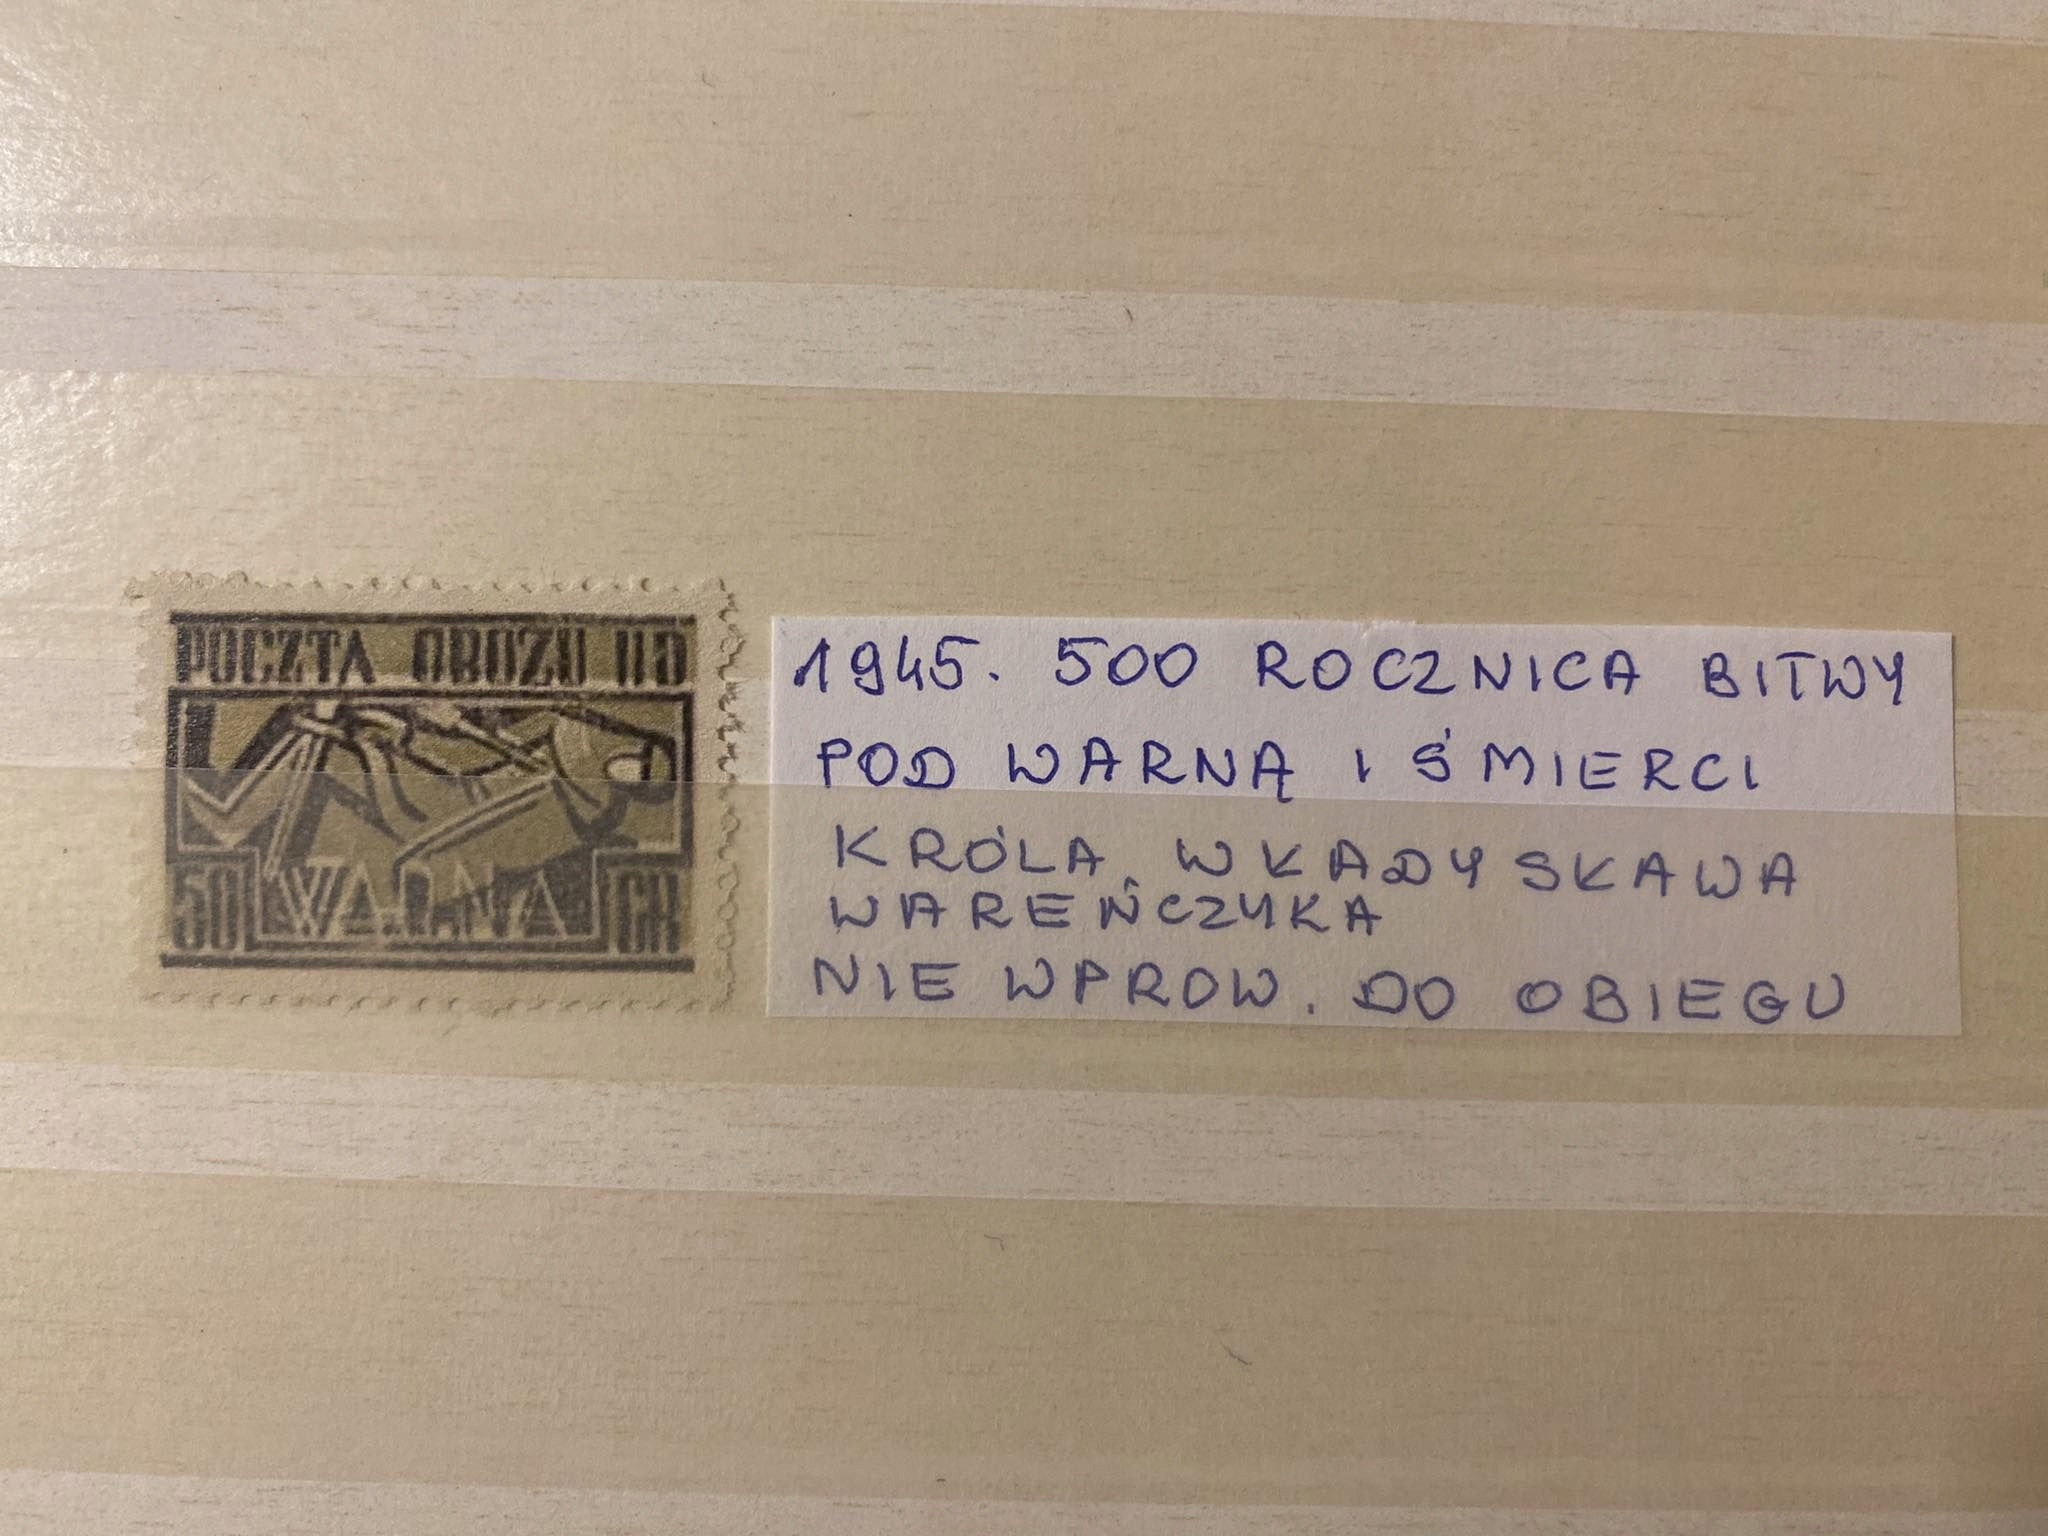 POCZTA OBOZU II D
50 WARNA GR
1945. 500 ROCZNICA BITWY
POD WARNĄ I ŚMIERCI
KRÓLA WŁADYSŁAWA
WAREŃCZYKA
NIE WPROW. DO OBIEGU